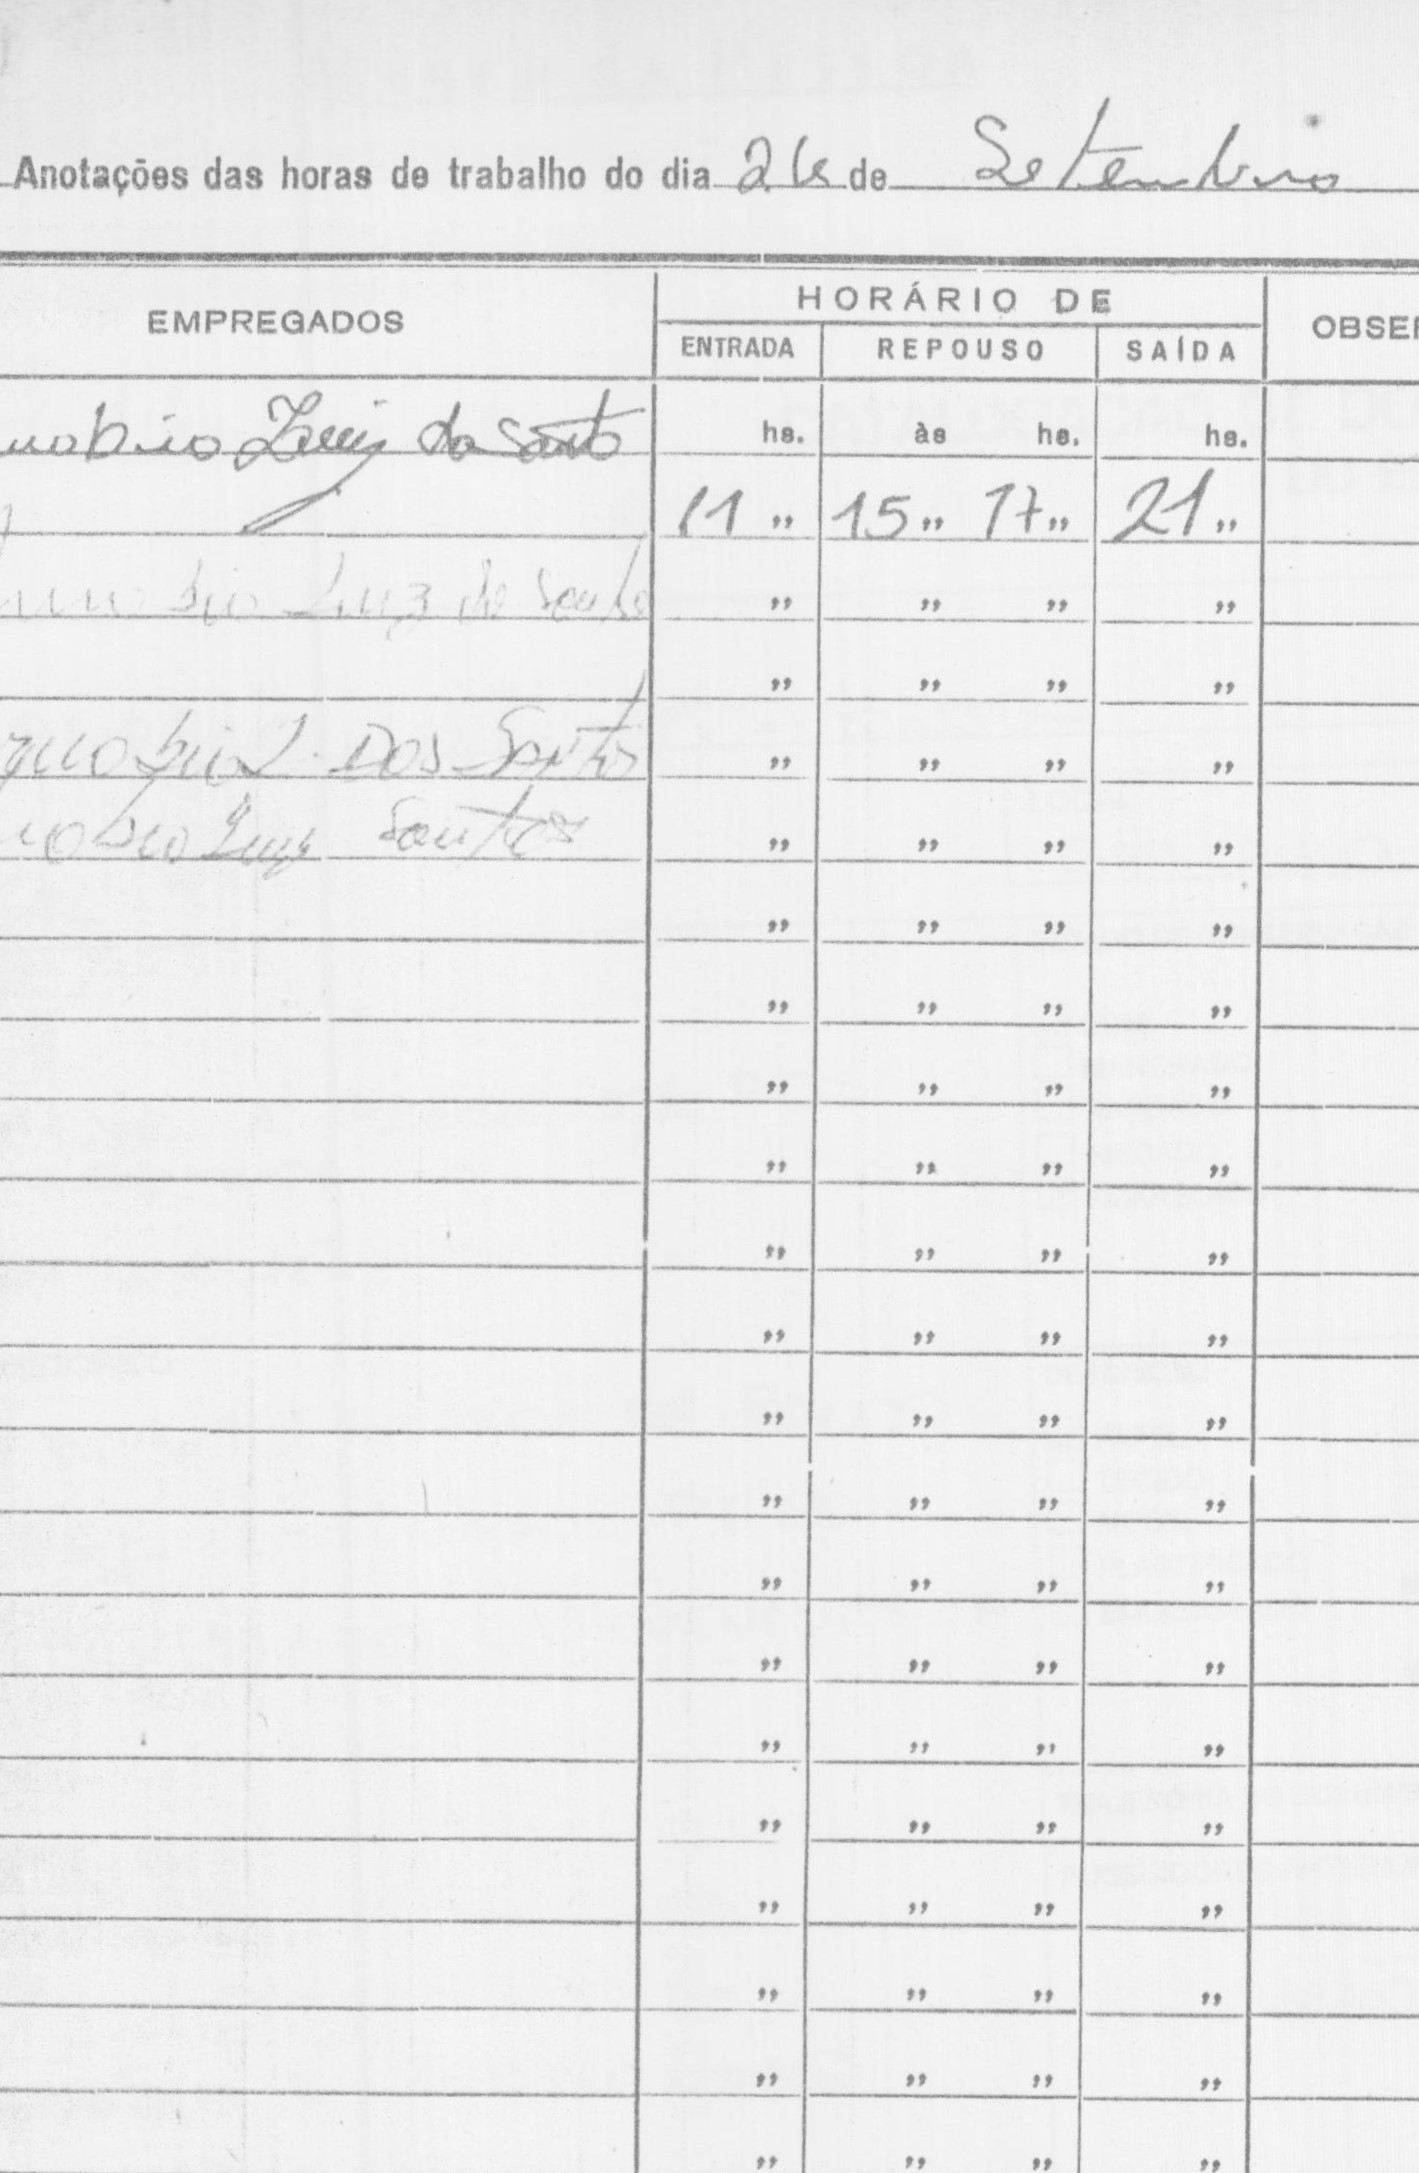 Anotações das horas de trabalho do dia 26 de Setembro
EMPREGADOS
HORÁRIO DE
ENTRADA REPOUSO SAÍDA
OBSER
Luiz do Santo
hs. às hs. hs.
11 " 15 " 17 " 21 "
Luiz do Santo " " " "
" " " "
L. DOS SANTOS " " " "
Luiz Santos " " " "
" " " "
" " " "
" " " "
" " " "
" " " "
" " " "
" " " "
" " " "
" " " "
" " " "
" " " "
" " " "
" " " "
" " " "
" " " "
" " " "